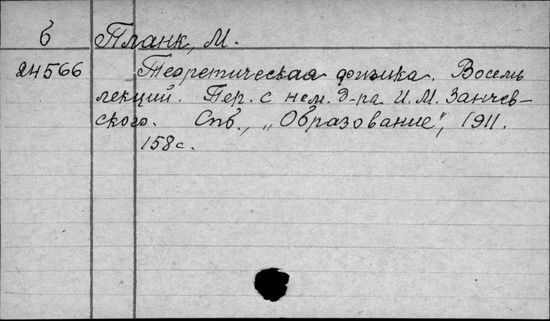 б Планк, М.
24566 Теоретическая физика. Восемь
лекций. Пер. с нем. д-ра И. М. Занчев-
ского. Спб., „Образование", 1911.
158 с.